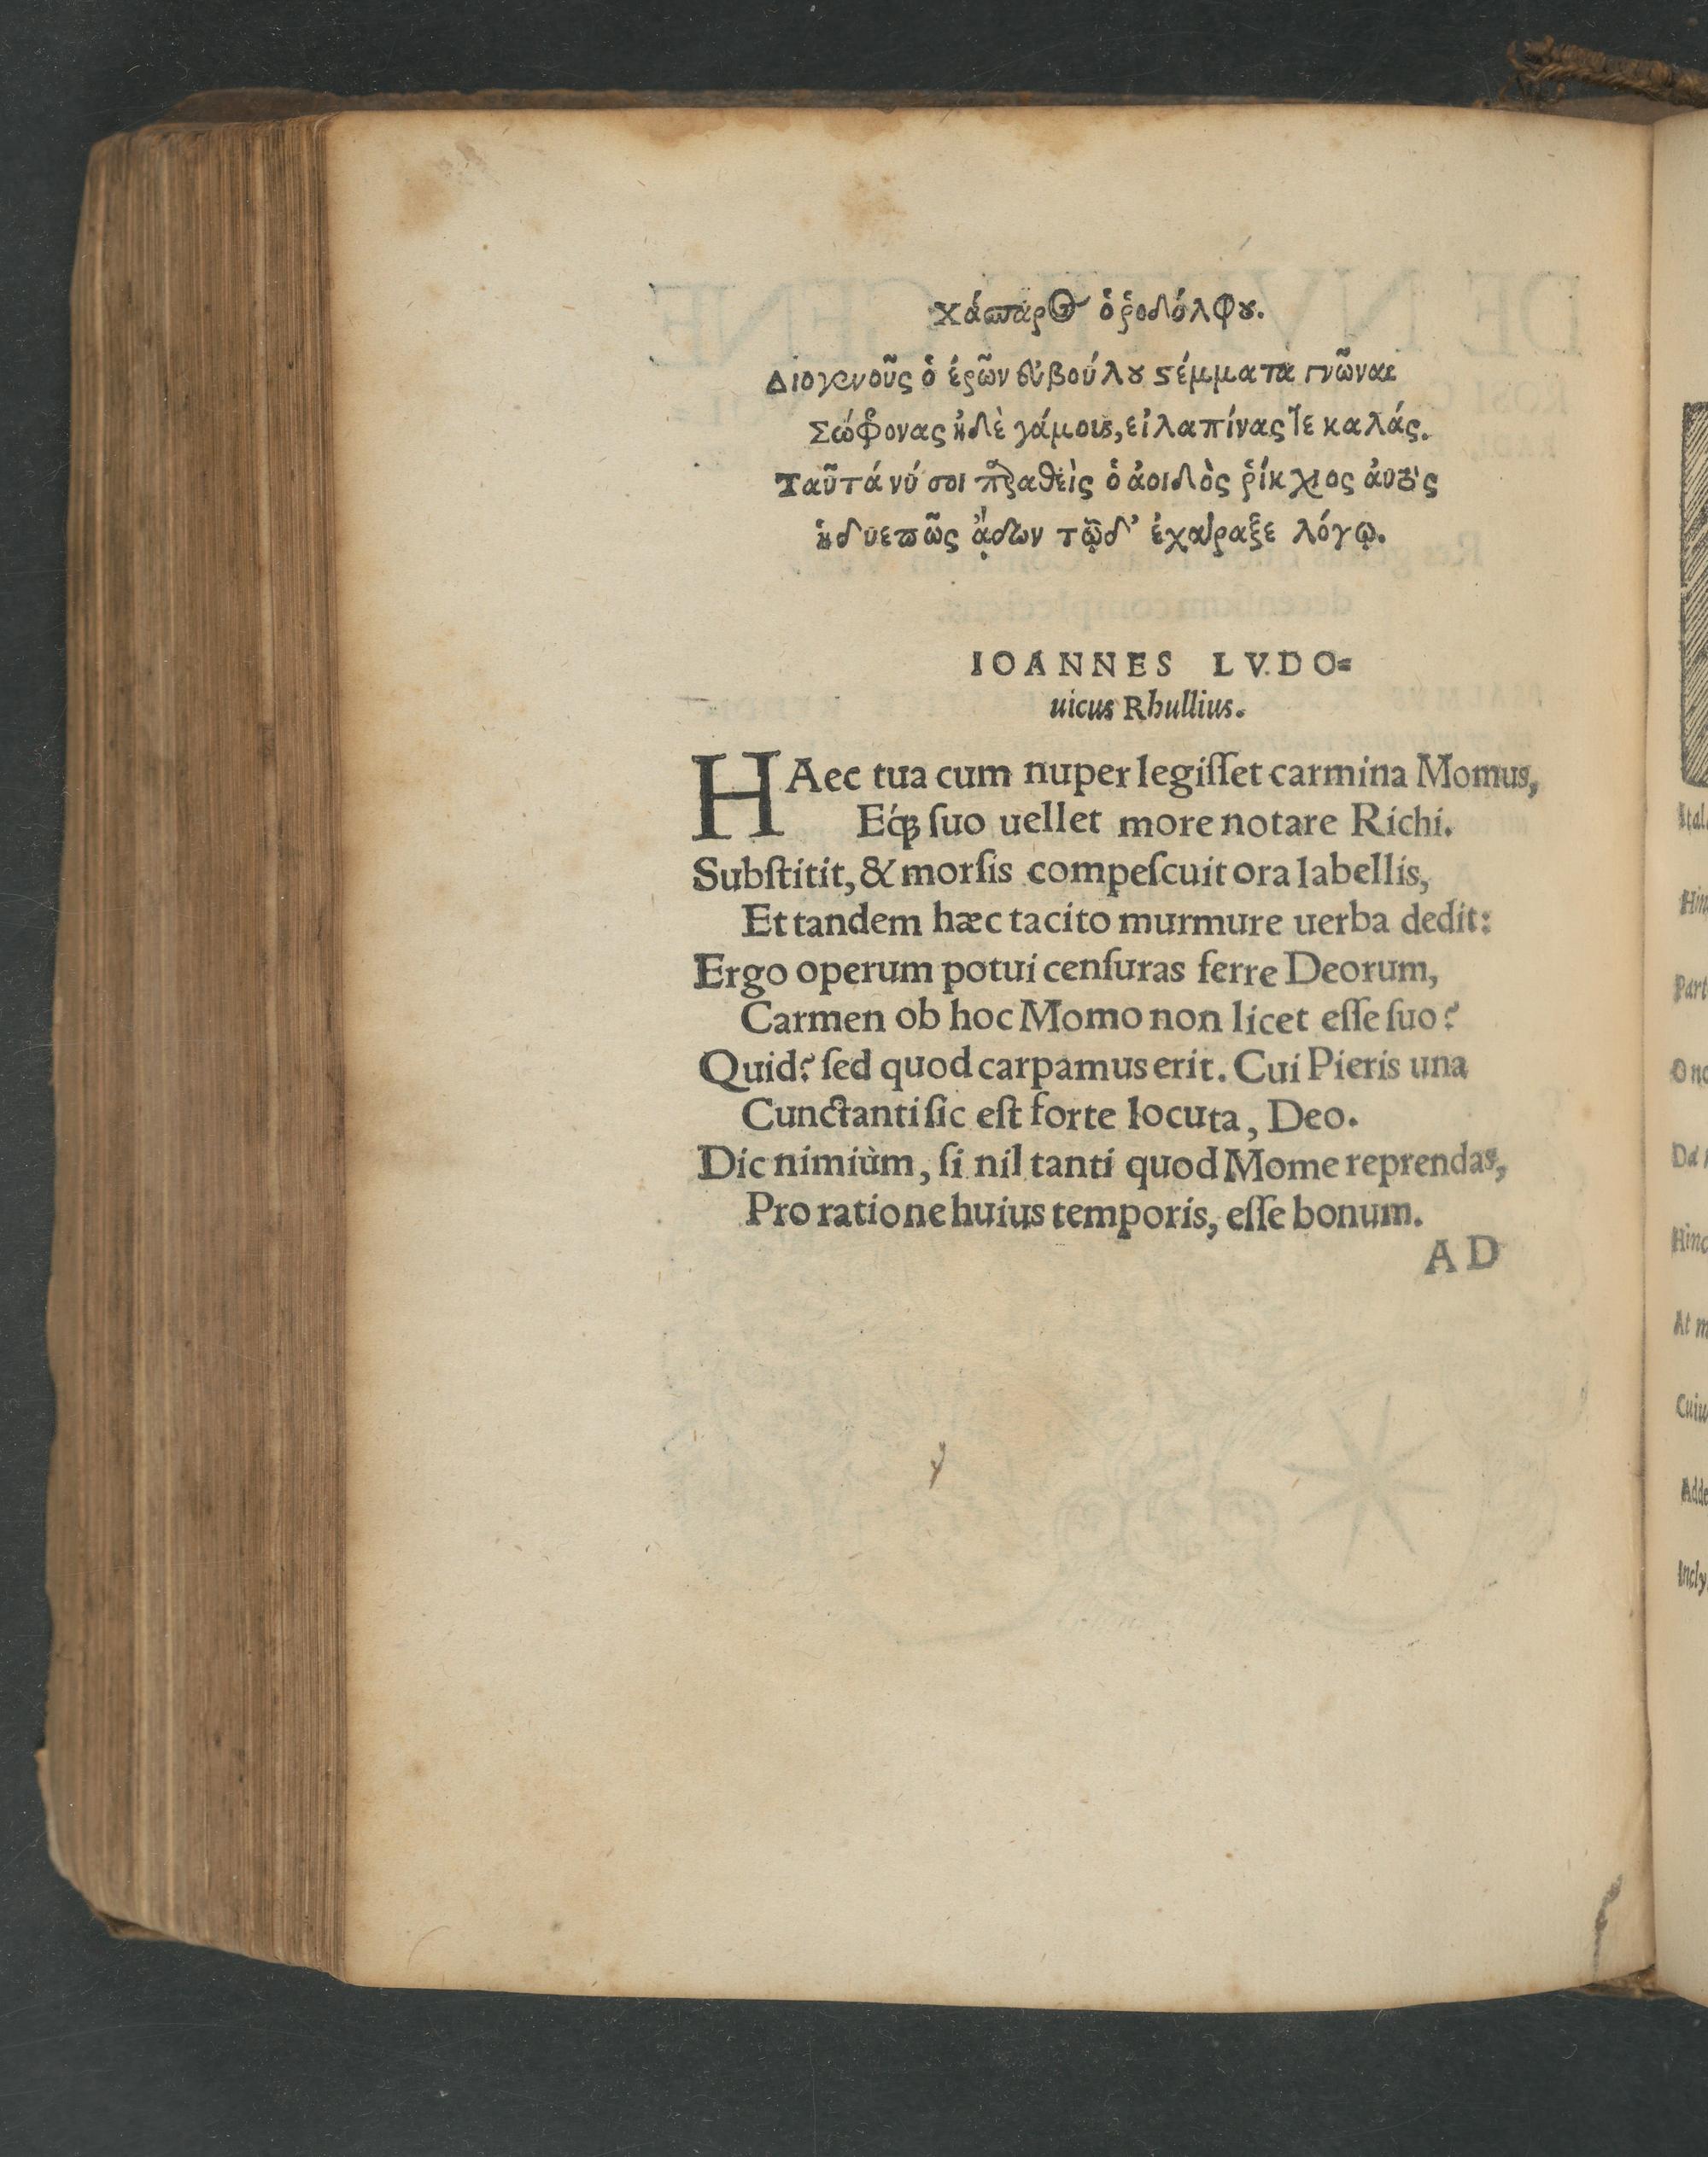 Χάσπαρος ὁ ῥοδόλφου.
Διογενοῦς ὁ ἐρῶν εὐβούλου στέμματα γνῶναι
Σώφρονας ἠδὲ γάμους, εἰλαπίνας τε καλάς.
Ταῦτά νύ σοι ὁ ἀοιδὸς ῥίκχιος αὐτὸς
ἡδυεπῶς ᾄδων τῷδ' ἐχάραξε λόγῳ.
IOANNES LVDO⸗
uicus Rhullius.
HAec tua cum nuper legiſſet carmina Momus,
Eq́ꝫ ſuo uellet more notare Richi.
Subſtitit, & morſis compeſcuit ora labellis,
Et tandem hæc tacito murmure uerba dedit:
Ergo operum potui cenſuras ferre Deorum,
Carmen ob hoc Momo non licet eſſe ſuo?
Quid? ſed quod carpamus erit. Cui Pieris una
Cunctanti ſic eſt forte locuta, Deo.
Dic nimiùm, ſi nil tanti quod Mome reprendas,
Pro ratione huius temporis, eſſe bonum.
AD